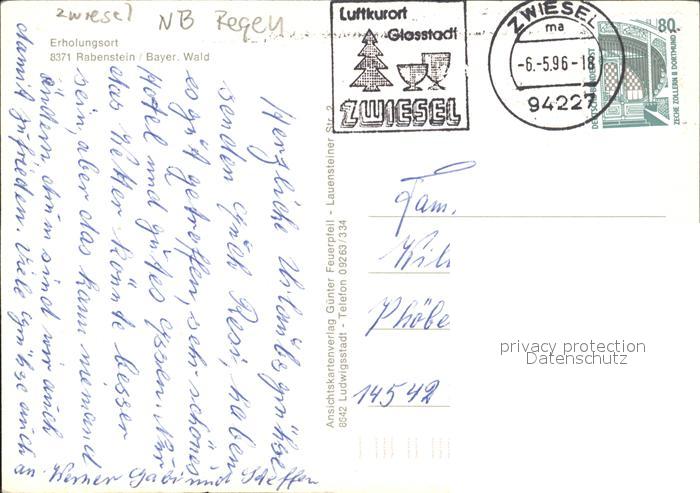 zwiesel NB Regen
Erholungsort
8371 Rabenstein / Bayer. Wald
Luftkurort
Glasstadt
ZWIESEL
ZWIESEL
ma
-6.-5.96-18
94227
80
DEUTSCHE BUNDESPOST
ZECHE ZOLLERN II DORTMUND
Herzliche Urlaubsgrüße
senden Euch Resi, haben
es gut getroffen, sehr schönes
Hotel und gutes Essen. Nur
das Wetter könnte besser
sein, aber das kann niemand
ändern drum sind wir auch
damit zufrieden. Viele Grüße auch
an Werner Gabi und Steffen
Ansichtskartenverlag Günter Feuerpfeil - Lauensteiner Str. 2
8642 Ludwigsstadt - Telefon 09263/334
Fam.
Phöbe
14542
privacy protection
Datenschutz